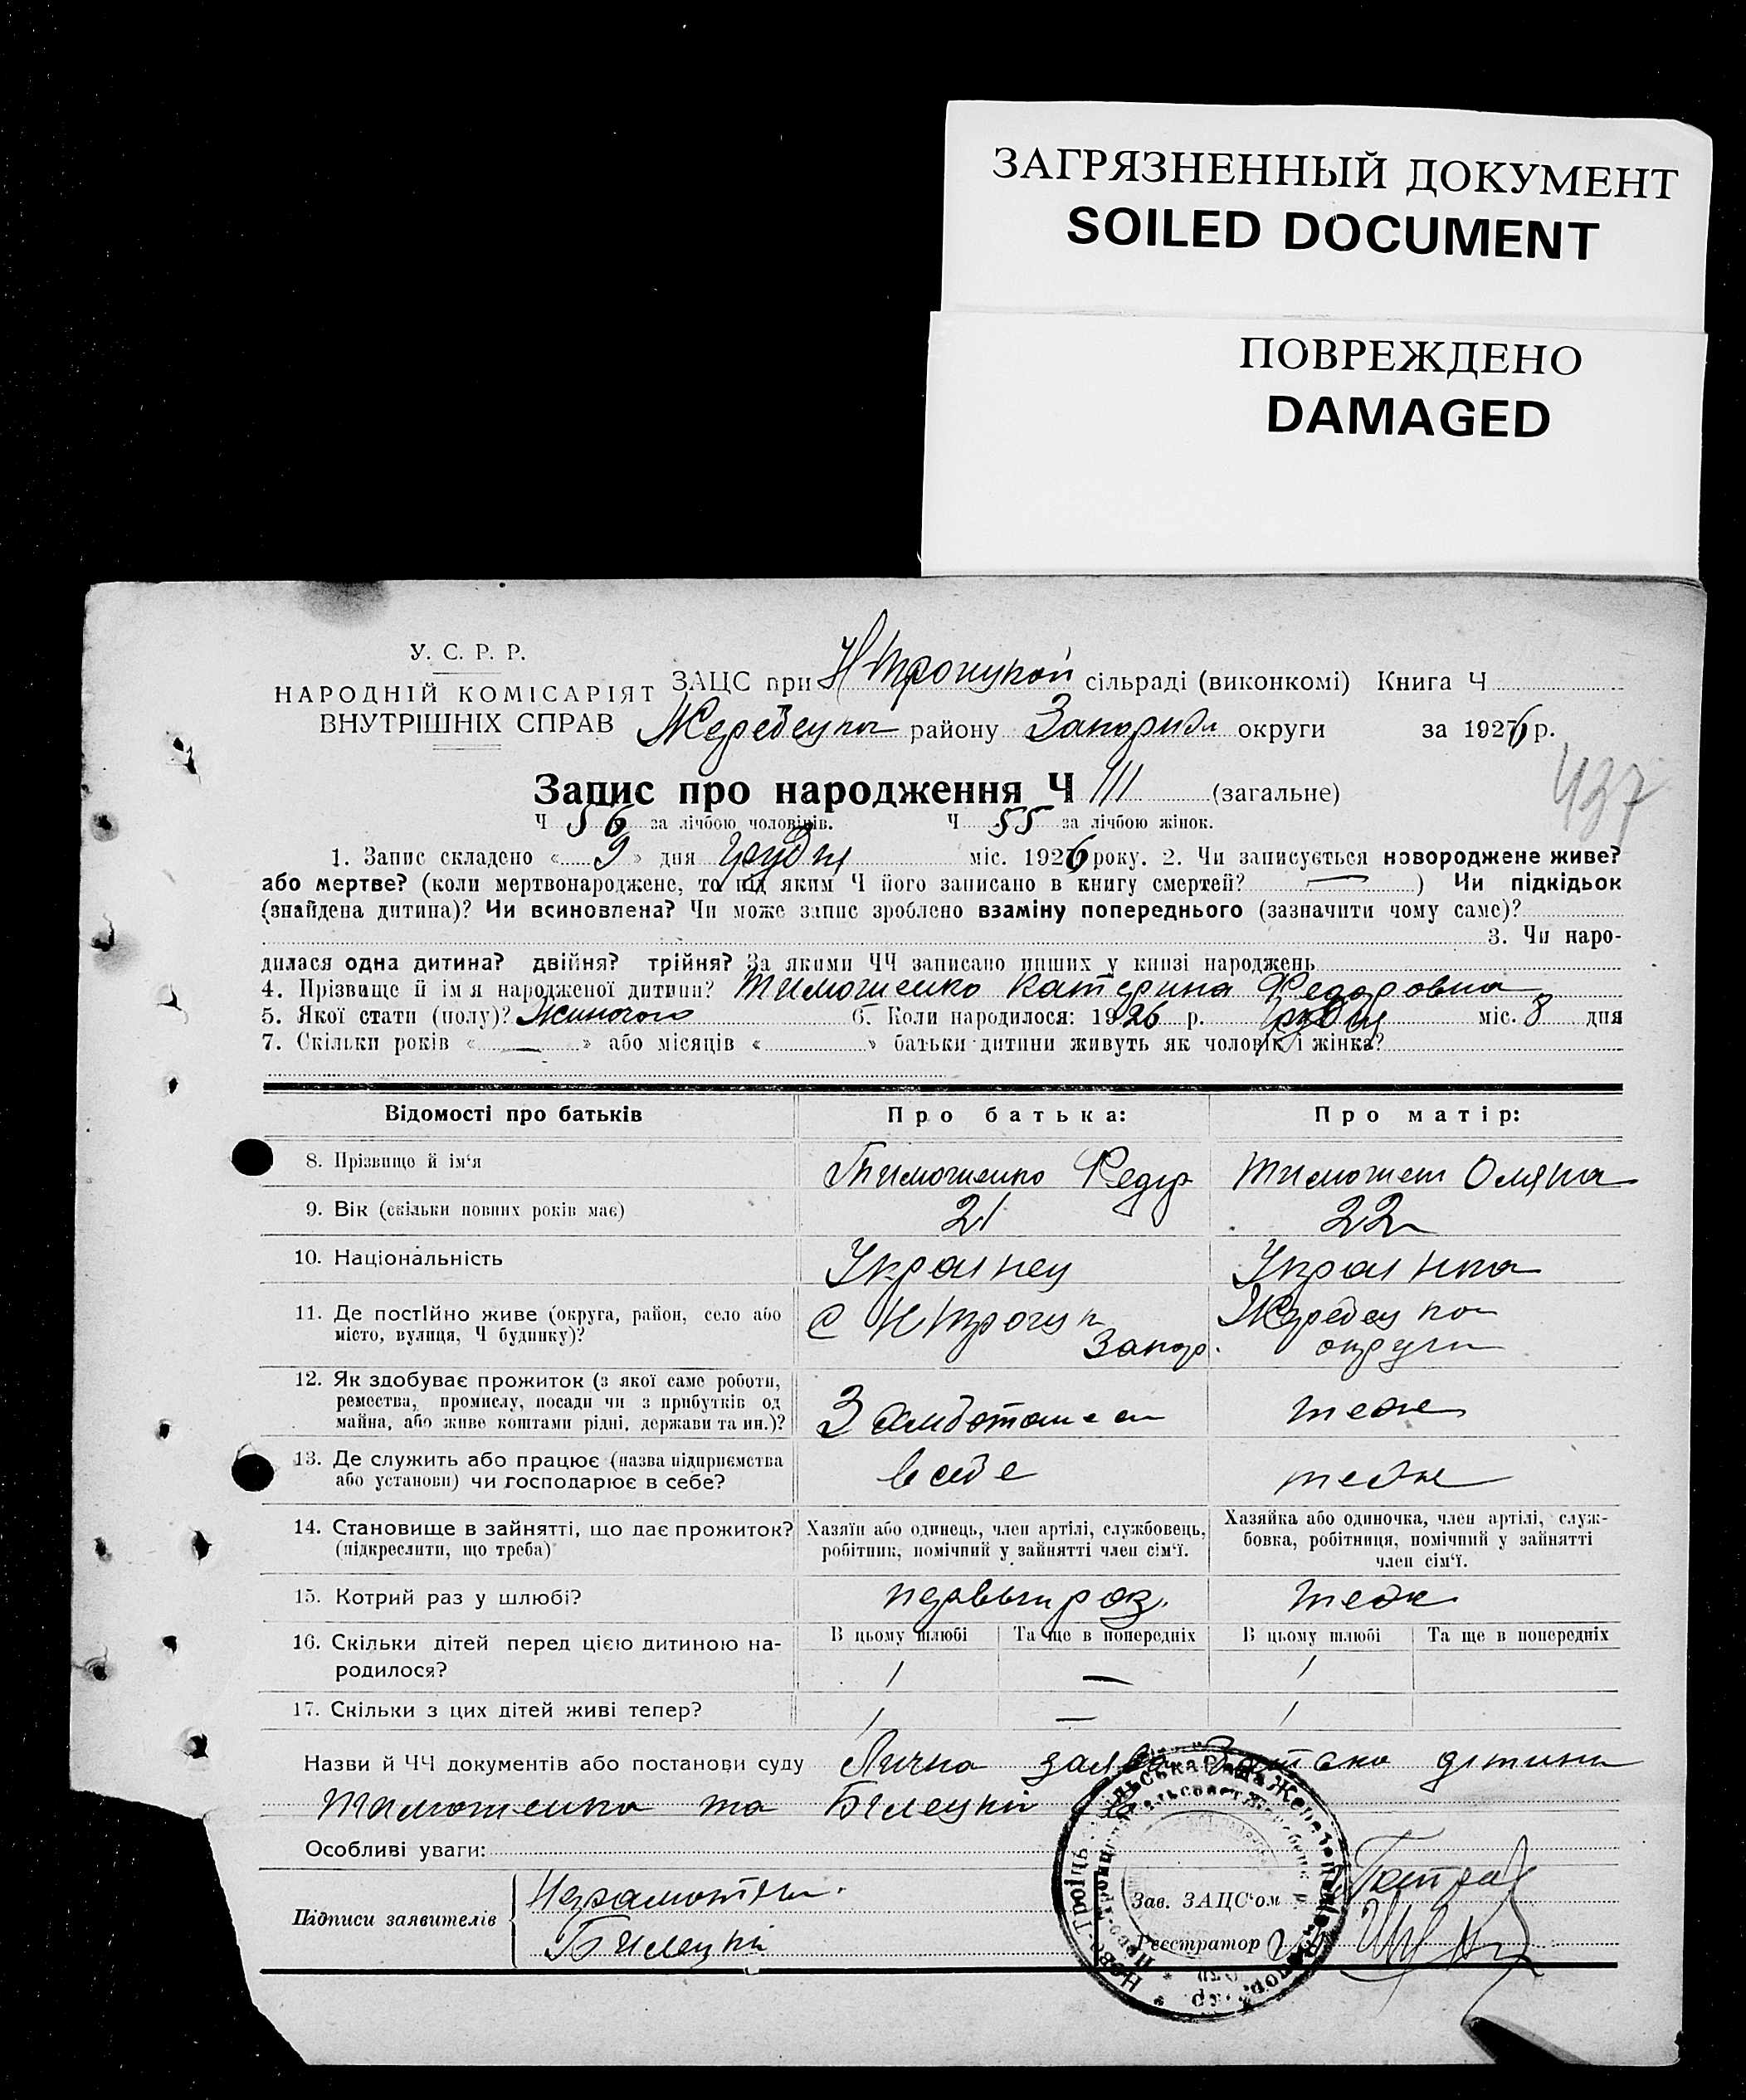 ЗАГРЯЗНЕННЫЙ ДОКУМЕНТ
SOILED DOCUMENT
ПОВРЕЖДЕНО
DAMAGED
У. С. Р. Р.
НАРОДНІЙ КОМІСАРІЯТ
ВНУТРІШНІХ СПРАВ
ЗАЦС при Н Троицкой сільраді (виконкомі) Книга Ч
Жеребецка району Запоризк округи за 1926 р.
437
Запис про народження Ч 111 (загальне)
Ч 56 за лічбою чоловіків. Ч 55 за лічбою жінок.
1. Запис складено « 9 » дня грудня міс. 1926 року. 2. Чи записується новороджене живе?
або мертве? (коли мертвонароджене, то під яким Ч його записано в книгу смертей? — ) Чи підкідьок
(знайдена дитина)? Чи всиновлена? Чи може запис зроблено взаміну попереднього (зазначити чому саме)?
3. Чи наро-
дилася одна дитина? двійня? трійня? За якими ЧЧ записано инших у книзі народжень
4. Прізвище й імя народженої дитини? Тимошенко Катерина Федоровна
5. Якої стати (полу)? Жиночого 6. Коли народилося: 1926 р. грудня міс. 8 дня
7. Скільки років « — » або місяців « » батьки дитини живуть як чоловік і жінка?
Відомості про батьків Про батька: Про матір:
8. Прізвищо й ім'я Тимошенко Федір Тимошен Оляна
9. Вік (скільки повних років має) 21 22
10. Національність Украінец Украінка
11. Де постійно живе (округа, район, село або
місто, вулиця, Ч будинку)?
С Н Троицк Жеребецка
Запор. округи
12. Як здобуває прожиток (з якої саме роботи,
ремества, промислу, посади чи з прибутків од
майна, або живе коштами рідні, держави та ин.)?
теж
13. Де служить або працює (назва підприємства
або установи) чи господарює в себе?
в себе теж
14. Становище в зайнятті, що дає прожиток?
(підкреслити, що треба)
Хазяїн або одинець, член артілі, службовець,
робітник, помічний у зайнятті член сім'ї.
Хазяйка або одиночка, член артілі, служ-
бовка, робітниця, помічний у зайнятті
член сім'ї.
15. Котрий раз у шлюбі? раз. теж
16. Скільки дітей перед цією дитиною на-
родилося?
В цьому шлюбі Та ще в попередніх В цьому шлюбі Та ще в попередніх
1 — 1
17. Скільки з цих дітей живі тепер? 1 — 1
Назви й ЧЧ документів або постанови суду Лична заява дітини
Тимошенка та Білецкій
Особливі уваги:
Підписи заявителів
Неграмотни.
Билецкий
Зав. ЗАЦС'ом
Реєстратор